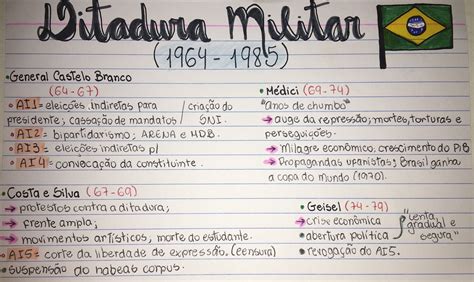 Ditadura Militar
(1964-1985)
• General Castelo Branco
(64-67)
• AI1 = eleições indiretas para
presidente; cassação de mandatos / criação do SNI.
• AI2 = bipartidarismo; ARENA e MDB.
• AI3 = eleições indiretas p/
• AI4 = convocação da constituinte.
• Médici (69-74)
"anos de chumbo"
→ auge da repressão; mortes, torturas e
perseguições.
→ Milagre econômico, crescimento do PIB
→ Propagandas ufanistas; Brasil ganha
a copa do mundo (1970).
• Costa e Silva (67-69)
→ protestos contra a ditadura;
→ frente ampla;
→ movimentos artísticos, morte do estudante.
• AI5 = corte da liberdade de expressão. (censura)
• suspensão do habeas corpus.
• Geisel (74-79)
→ crise econômica
• abertura política
• revogação do AI5.
"lenta
gradual e
segura"